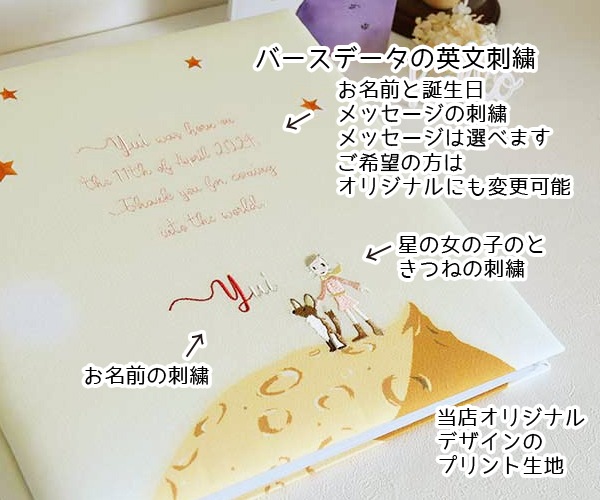 バースデータの英文刺繍
お名前と誕生日
メッセージの刺繍
メッセージは選べます
ご希望の方は
オリジナルにも変更可能
Yui was born on
the 11th of April 2021.
Thank you for coming
into the world.
星の女の子のと
きつねの刺繍
Yui
お名前の刺繍
当店オリジナル
デザインの
プリント生地